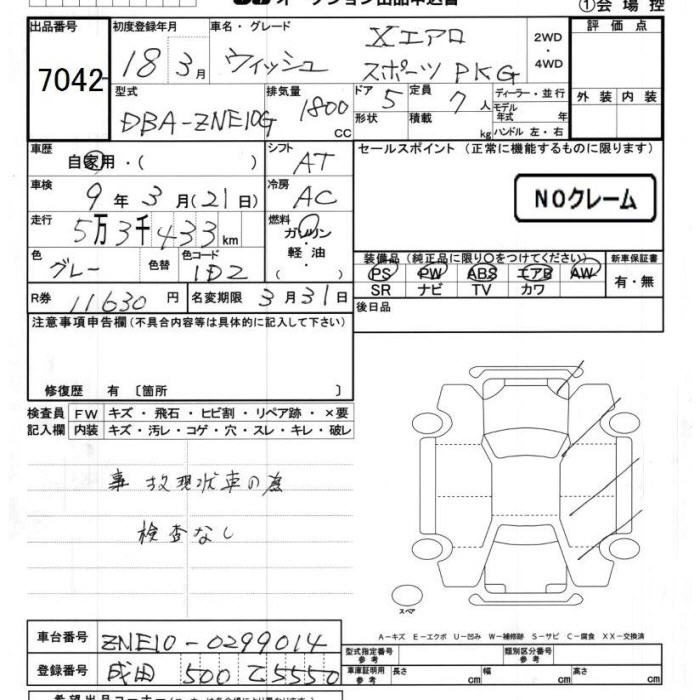 オークション出品申込書 ①会場控
出品番号 初度登録年月 車名・グレード 評価点
7042 18 3月 ウィッシュ Xエアロ スポーツPKG 2WD ・ 4WD
型式 排気量 ドア 定員 ディーラー・並行 外装 内装
DBA-ZNE10G 1800 CC 5 7人 モデル年式 年
形状 積載 kg ハンドル 左・右
車歴 自家用・( ) シフト AT セールスポイント (正常に機能するものに限ります)
車検 9年3月(21日) 冷房 AC NOクレーム
走行 5万3千433km 燃料 ガソリン ・ 軽油 ( )
色 グレー 色替 色コード 1D2
装備品 (純正品に限り○をつけてください) 新車保証書
PS PW ABS エアB AW 有・無
SR ナビ TV カワ
R券 11630円 名変期限 3月31日 後日品
注意事項申告欄(不具合内容等は具体的に記入して下さい)
修復歴 有 〔箇所 〕
検査員 FW キズ・飛石・ヒビ割・リペア跡・×要
記入欄 内装 キズ・汚レ・コゲ・穴・スレ・キレ・破レ
事故現状車の為
検査なし
スペア
A-キズ E-エクボ U-凹み W-補修跡 S-サビ C-腐食 XX-交換済
車台番号 ZNE10-0299014 型式指定番号 参考 類別区分番号 参考
登録番号 成田 500 て5550 車庫証明用 参考 長さ cm 幅 cm 高さ cm